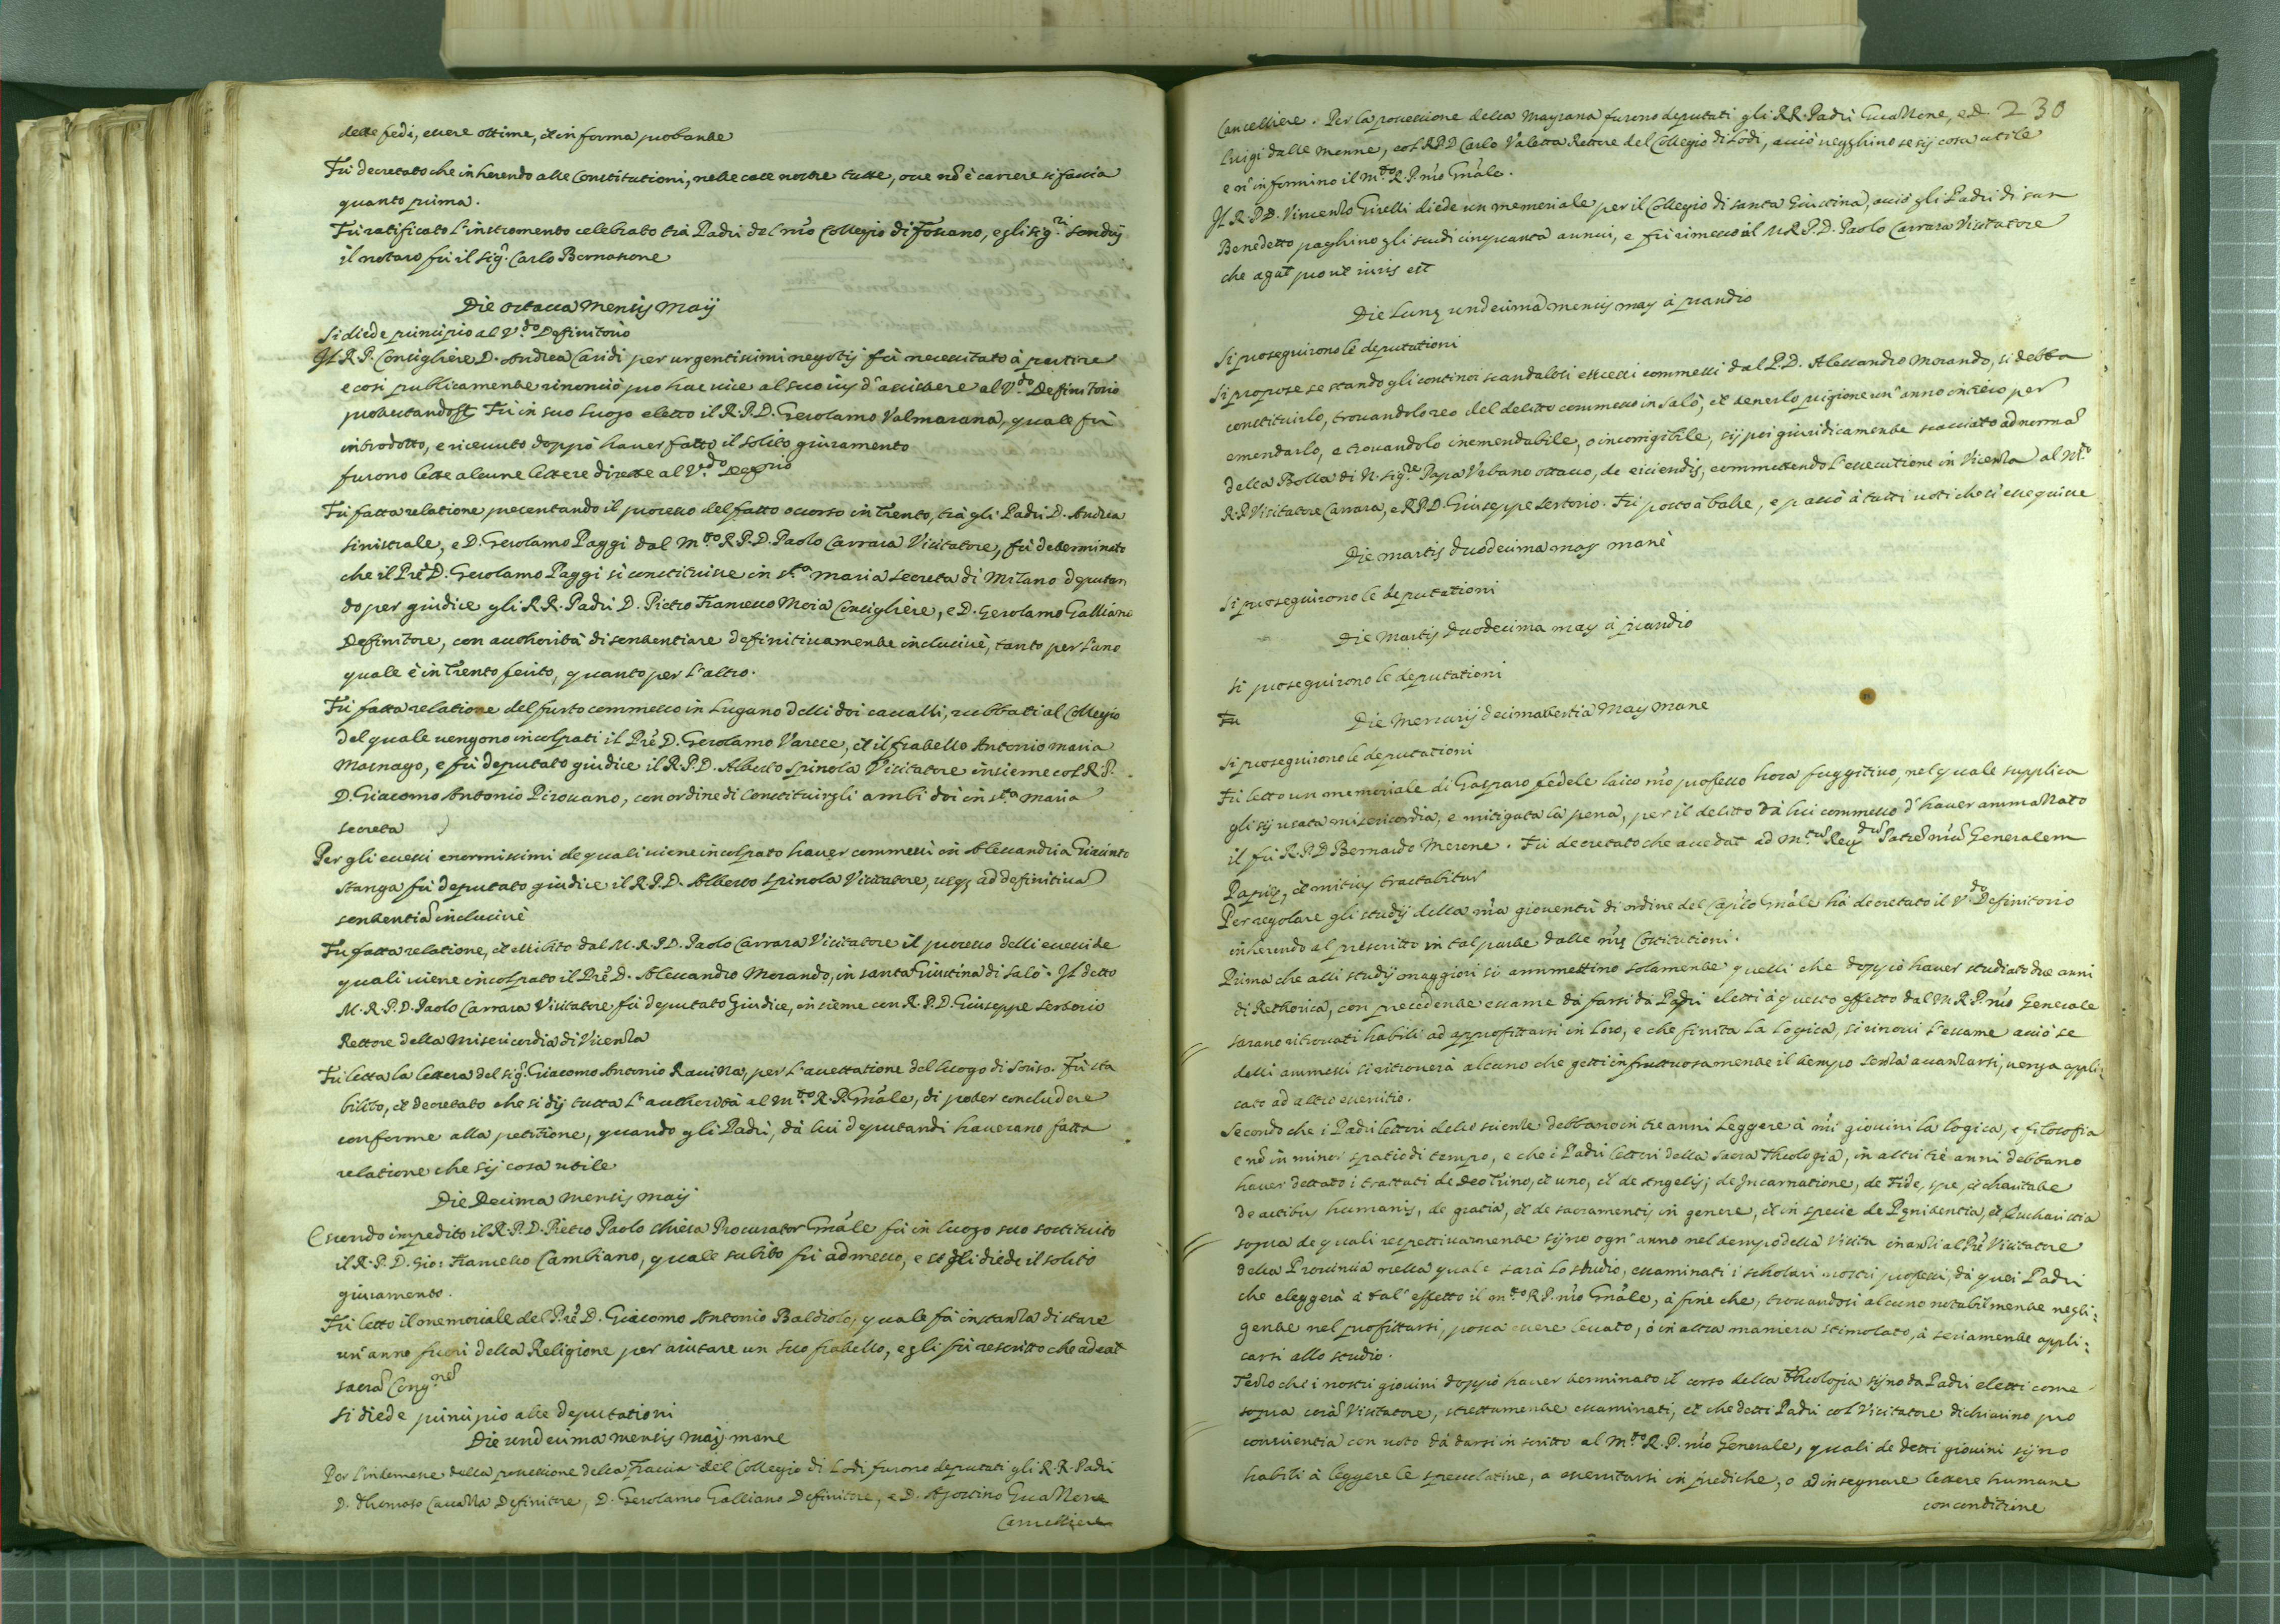 delle fedi, essere ottime, et in forma probante
Fù decretato che inherendo alle Constitutioni, nelle case nostre tutte, oue nõ è carcere si faccia
quanto prima.
Fù ratificato l'instromento celebrato trà Padri del nr̃o Collegio di Fossano, e gli sig.ri
il notaro fù il sig.r Carlo Bernasone
Die octaua Mensis Maij
Si diede principio al V.do Definitorio
Il R.P. Consigliere D. Andrea Caridi per urgentissimi negotij fù necessitato à partire
e così publicamente rinonciò pro hac vice al suo ius d'assistere al V.do Definitorio
protestandosi. Fù in suo luogo eletto il R.P.D. Gerolamo Valmarana, quale fù
introdotto, e riceuuto doppò hauer fatto il solito giuramento
furono lette alcune lettere dirette al V.do
Fù fatta relatione presentando il processo del fatto occorso in Trento, trà gli Padri D. Andrea
Sinistrale, e D. Gerolamo Paggi dal M.to R.P.D. Paolo Carrara Visitatore, fù determinato
che il Prẽ D. Gerolamo Paggi si constituisse in S.ta Maria Secreta di Milano deputan
do per giudice gli R.R. Padri D. Pietro Francesco Moia Consigliere, e D. Gerolamo Galliano
Definitore, con authorità di sententiare definitiuamente inclusiuè, tanto per l'uno
quale è in Trento ferito, quanto per l'altro.
Fù fatta relatione del furto commesso in Lugano delli doi caualli, rubbati al Collegio
del quale uengono incolpati il Prẽ D. Gerolamo Varese, et il fratello Antonio Maria
Masnago, e fù deputato giudice il R.P.D. Alberto Spinola Visitatore insieme col R.P.
D. Giacomo Antonio Pirouano, con ordine di constituirgli ambi doi in S.ta Maria
Secreta
Per gli eccessi enormissimi de quali uiene incolpato hauer commessi in Alessandria Giacinto
Stanga fù deputato giudice il R.P.D. Alberto Spinola Visitatore, usq; ad definitiuã
sententiã inclusiuè
Fù fatta relatione, et essibito dal M.R.P.D. Paolo Carrara Visitatore il processo delli eccessi de
quali uiene incolpato il Prẽ D. Alessandro Morando, in santa Giustina di Salò. Il detto
M.R.P.D. Paolo Carrara Visitatore fù deputato Giudice, insieme con R.P.D. Giuseppe Sertorio
Rettore della Misericordia di Vicenza
Fù letta la lettera del sig.r Giacomo Antonio Rauizza, per l'accettatione del luogo di Soriso. Fù sta
bilito, et decretato che si dij tutta l'authorità al M.to R.P. Gñale, di poter concludere
conforme alla petitione, quando gli Padri, dà lui deputandi haverano fatta
relatione che sij cosa utile
Die Decima Mensis Maij
Essendo impedito il R.P.D. Pietro Paolo Chiesa Procurator Gñale fù in luogo suo sostituito
il R.P.D. Gio: Francesco Cambiano, quale subito fù admesso, e se gli diede il solito
giuramento.
Fù letto il memoriale del Prẽ D. Giacomo Antonio Baldiolo, quale fà instanza di stare
un'anno fuori della Religione per aiutare un suo fratello, e gli fù rescritto che adeat
sacrã Cong.nẽ
Si diede principio alle deputationi
Die undecima mensis maij mane
Per l'interesse della possessione della Fraccia del Collegio di Lodi furono deputati gli R.R. Padri
D. Thomaso Cauazza Definitore, D. Gerolamo Galliano Definitore, e D. Agostino Guazzone
Cancelliere
230
Cancelliere. Per la possessione della Maysana furono deputati gli RR. Padri Guazzone, e D.
Luigi dalle Menne, col R.P.D. Carlo Valetta Rettore del Collegio di Lodi, acciò uegghino se sij cosa utile
e n' informino il M.to R.P. nr̃o Gñale.
Il R.P.D. Vincenzo Girelli diede un memoriale per il Collegio di santa Giustina, acciò gli Padri di san
Benedetto paghino gli scudi cinquanta annui, e fù rimesso al M.R.P.D. Paolo Carrara Visitatore
che agat prout iuris est
Die Lunę undecima mensis may à prandio
Si proseguirono le deputationi
Si propose se stando gli continoi scandalosi eccessi commessi dal P.D. Alessandro Morando, si debba
constituirlo, trouandolo reo del delitto commesso in Salò, et tenerlo prigione un'anno intiero per
emendarlo, e trouandolo inemendabile, o incorrigibile, sij poi giuridicamente scacciato ad normã
della Bolla di N. Sig.re Papa Vrbano ottauo, de eiiciendis, commettendo l'essecutione in Vicenza al M.to
R.P. Visitatore Carrara, e R.P.D. Giuseppe Sertorio. Fù posto à balle, e passò à tutti uoti che si essequisse
Die martis duodecima may manè
Si proseguirono le deputationi
Die Martis duodecima may à prandio
Si proseguirono le deputationi
Fù
Die Mercurij decimatertia May mane
Si proseguirono le deputationi
Fù letto un memoriale di Gasparo Fedele laico nr̃o professo hora fuggitiuo, nel quale supplica
gli sij usata misericordia, e mitigata la pena, per il delitto dà lui commesso d'hauer ammazzato
il fù R.P.D. Bernardo Merone. Fù decretato che accedat ad M.tum Reu.dum Patrẽ nr̃ũ Generalem
Papię, et mitius tractabitur
Per regolare gli studij della nr̃a gioventù di ordine del Capito Gñale hà decretato il V.do Definitorio
inherendo al prescritto in tal parte dalle nr̃ę Costitutioni.
Prima che alli studij maggiori si ammettino solamente quelli che doppò hauer studiato due anni
di Rethorica, con precedente essame dà farsi dà Padri eletti à questo effetto dal M.R.P. nr̃o Generale
sarano ritrouati habili ad approfittarsi in loro, e che finita la logica, si rinoui l'essame acciò se
delli ammessi si ritrouerà alcuno che getti infruttuosamente il tempo senza auanzarsi, uenga appli:
cato ad altro essercitio.
Secondo che i Padri lettori delle scienze debbano in tre anni leggere à nr̃i giouini la logica, e filosofia
e nõ in minor spatio di tempo, e che i Padri lettori della sacra Theologia, in altri trè anni debbano
hauer dettato i trattati de Deo Trino, et uno, et de Angelis, de Incarnatione, de Fide, spe, et charitate
de actibus humanis, de gratia, et de sacramentis in genere, et in specie de Pęnitentia, et Eucharistia
sopra de quali respettiuamente sijno ogn'anno nel tempo della Visita inanzi al Prẽ Visitatore
della Prouincia nella quale sarà lo studio, essaminati i scholari nostri professi, dà quei Padri
che eleggerà à tal'effetto il m.to R.P. nr̃o Gñale, à fine che, trouandosi alcuno notabilmente negli:
gente nel profittarsi, possa essere leuato, ò in altra maniera stimolato, à seriamente appli:
carsi allo studio.
Terzo che i nostri giouini doppò hauer terminato il corso della Theologia sijno da Padri eletti come
sopra corã Visitatore, strettamente essaminati, et che detti Padri col Visitatore dichiarino pro
conscientia con uoto dà darsi in scritto al M.to R.P. nr̃o Generale, quali de detti giouini sijno
habili à leggere le specolatiue, a essercitarsi in prediche, o ad insegnare lettere humane
con conditione